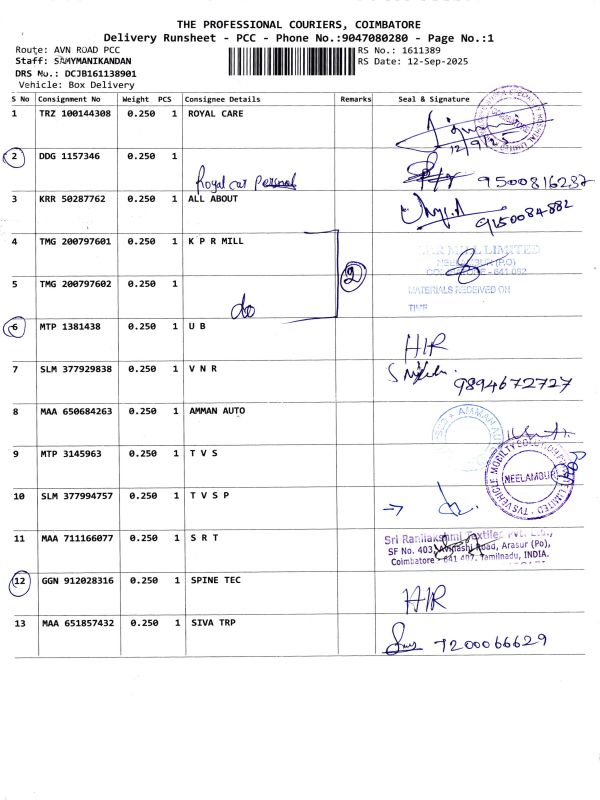 THE PROFESSIONAL COURIERS, COIMBATORE
Delivery Runsheet - PCC - Phone No.:9047080280 - Page No.:1
Route: AVN ROAD PCC RS No.: 1611389
Staff: SAMYMANIKANDAN RS Date: 12-Sep-2025
DRS No.: DCJB161138901
Vehicle: Box Delivery
S No Consignment No Weight PCS Consignee Details Remarks Seal & Signature
1 TRZ 100144308 0.250 1 ROYAL CARE
12/9/25
2 DDG 1157346 0.250 1
Royal car Personal 9500816237
3 KRR 50287762 0.250 1 ALL ABOUT
9150084882
4 TMG 200797601 0.250 1 K P R MILL
MILL LIMITED
2
5 TMG 200797602 0.250 1
MATERIALS RECEIVED ON
do
TIME
6 MTP 1381438 0.250 1 U B
HIR
7 SLM 377929838 0.250 1 V N R
9894672727
8 MAA 650684263 0.250 1 AMMAN AUTO
AMMAN AUTO
9 MTP 3145963 0.250 1 T V S
TVS VEHICLE MOBILITY SOLUTION PRIVATE LIMITED
NEELAMBUR
10 SLM 377994757 0.250 1 T V S P
11 MAA 711166077 0.250 1 S R T
Sri Ranilakshmi Textiles Pvt. Ltd.,
SF No. 403, Avinashi Road, Arasur (Po),
Coimbatore - 641 407. Tamilnadu, INDIA.
12 GGN 912028316 0.250 1 SPINE TEC
HIR
13 MAA 651857432 0.250 1 SIVA TRP
7200066629